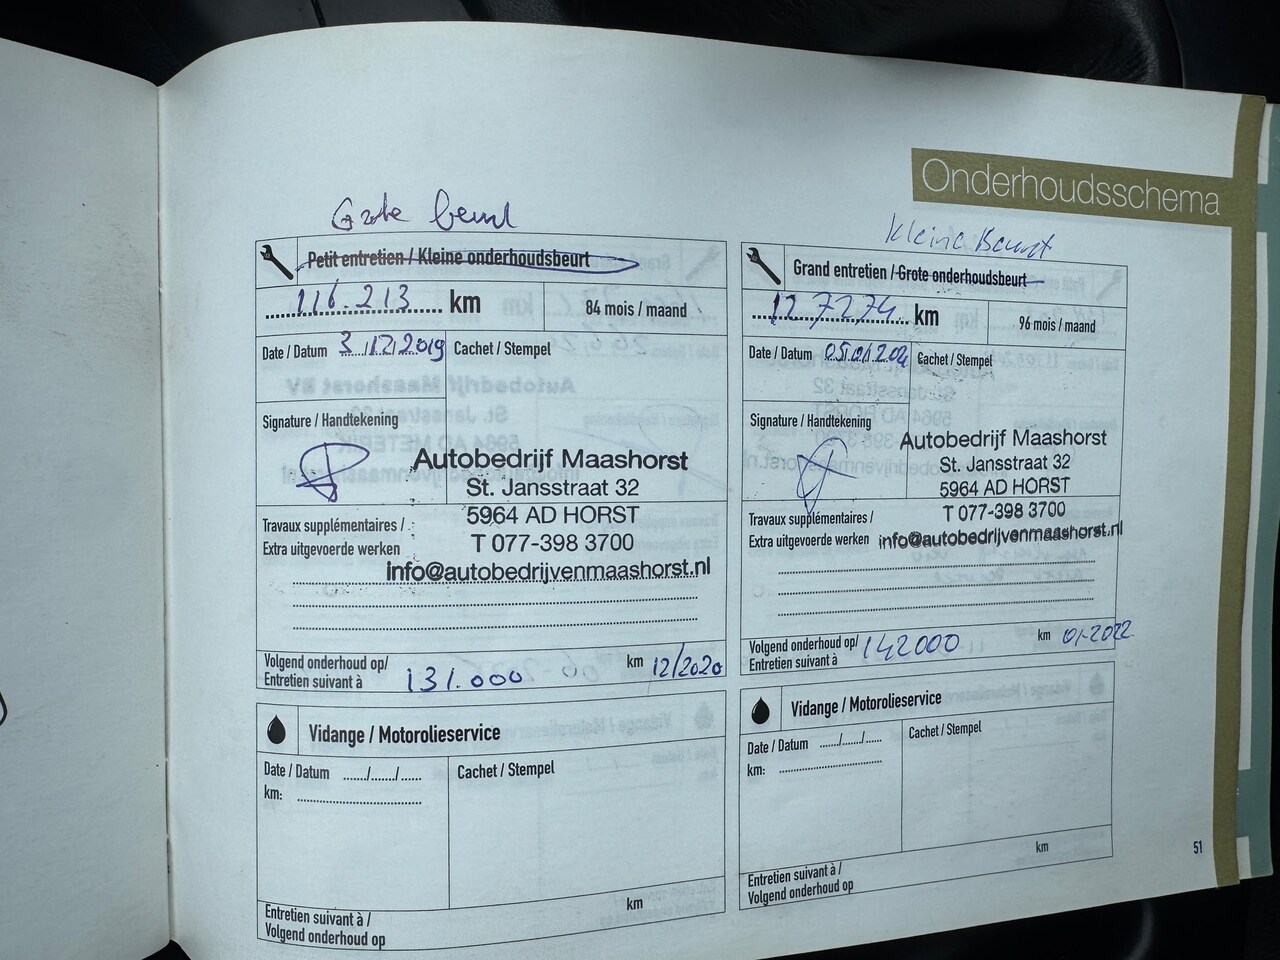 Onderhoudsschema
Grote beurt
Petit entretien / Kleine onderhoudsbeurt
116.213 km
84 mois / maand
Date / Datum 3/12/2019
Cachet / Stempel
Signature / Handtekening
Autobedrijf Maashorst
St. Jansstraat 32
5964 AD HORST
T 077-398 3700
info@autobedrijvenmaashorst.nl
Travaux supplémentaires /
Extra uitgevoerde werken
Volgend onderhoud op/
Entretien suivant à 131.000 km 12/2020
Vidange / Motorolieservice
Date / Datum ....../....../......
Cachet / Stempel
km:
km
Entretien suivant à /
Volgend onderhoud op
Kleine Beurt
Grand entretien / Grote onderhoudsbeurt
127274 km
96 mois / maand
Date / Datum
Cachet / Stempel
Signature / Handtekening
Autobedrijf Maashorst
St. Jansstraat 32
5964 AD HORST
T 077-398 3700
info@autobedrijvenmaashorst.nl
Travaux supplémentaires /
Extra uitgevoerde werken
Volgend onderhoud op/
Entretien suivant à 142000 km 01-2022
Vidange / Motorolieservice
Date / Datum ....../....../......
Cachet / Stempel
km:
km
Entretien suivant à /
Volgend onderhoud op
51